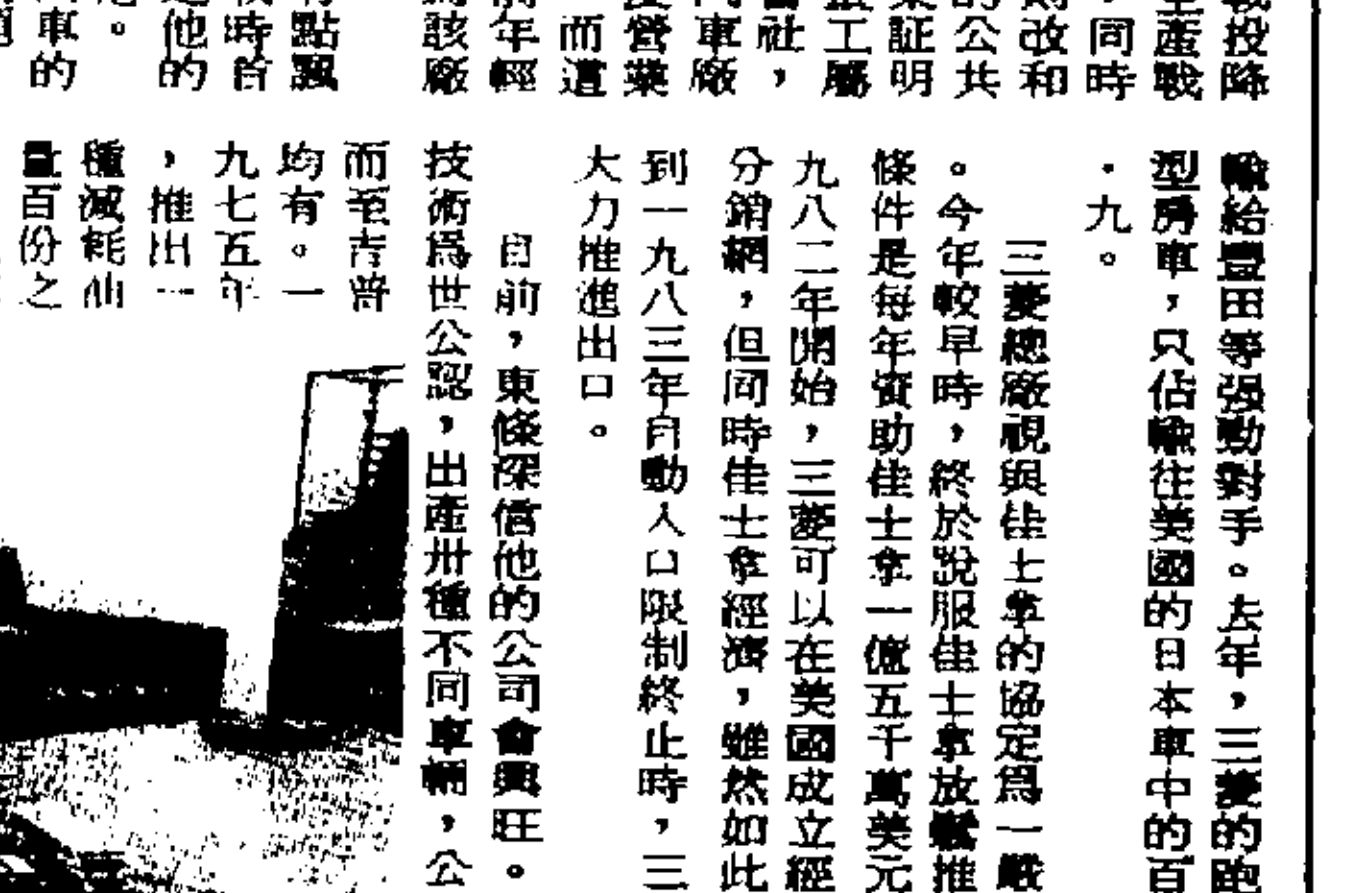 戰投降
生產戰
，同時
則改和
的公共
業証明
工屬
會社，
車廠
營業
而遭
前年輕
爲該廠
點飄
時首
他的
。
車的
輸給豐田等强勁對手。去年，三菱的跑
型房車，只佔輸往美國的日本車中的百
．九。
三菱總廠視與佳士拿的協定爲一嚴
。今年較早時，終於說服佳士拿放鬆推
條件是每年資助佳士拿一億五千萬美元
九八二年開始，三菱可以在美國成立經
分銷網，但同時佳士拿經濟，雖然如此
到一九八三年自動入口限制終止時，三
大力推進出口。
目前，東條深信他的公司會興旺。
技術爲世公認，出產卅種不同車輛，公
而至吉普
均有。一
九七五年
，推出一
種減耗油
量百份之